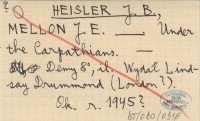 HEISLER J. B.,
MELLON J. E. — Under
the Carpathians. —
Demy 8°, il. Wydal Lind-
say Drummond (London?).
Ok. r. 1945?